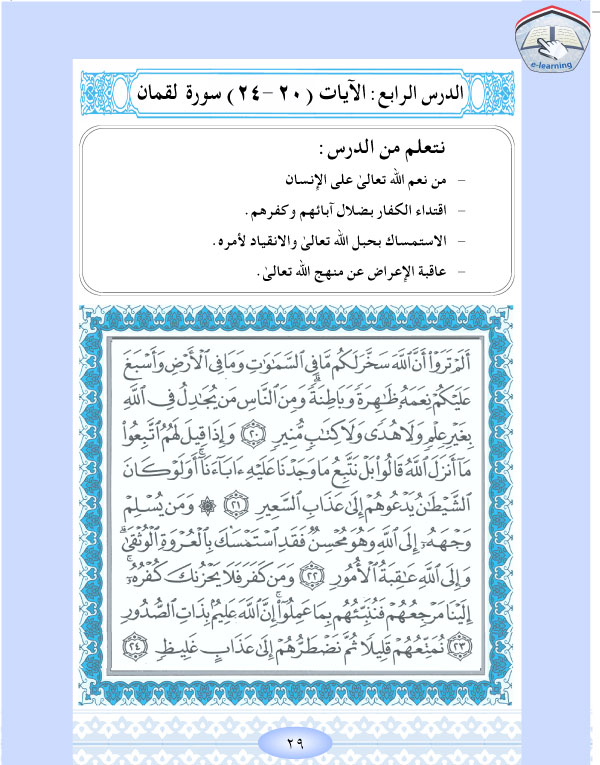 e-learning
الدرس الرابع: الآيات (٢٠ - ٢٤) سورة لقمان
نتعلم من الدرس:
- من نعم الله تعالىٰ على الإنسان
- اقتداء الكفار بضلال آبائهم وكفرهم.
- الاستمساك بحبل الله تعالىٰ والانقياد لأمره.
- عاقبة الإعراض عن منهج الله تعالىٰ.
أَلَمْ تَرَوْا۟ أَنَّ ٱللَّهَ سَخَّرَ لَكُم مَّا فِى ٱلسَّمَٰوَٰتِ وَمَا فِى ٱلْأَرْضِ وَأَسْبَغَ
عَلَيْكُمْ نِعَمَهُۥ ظَٰهِرَةً وَبَاطِنَةً ۗ وَمِنَ ٱلنَّاسِ مَن يُجَٰدِلُ فِى ٱللَّهِ
بِغَيْرِ عِلْمٍ وَلَا هُدًى وَلَا كِتَٰبٍ مُّنِيرٍ ٢٠ وَإِذَا قِيلَ لَهُمُ ٱتَّبِعُوا۟
مَآ أَنزَلَ ٱللَّهُ قَالُوا۟ بَلْ نَتَّبِعُ مَا وَجَدْنَا عَلَيْهِ ءَابَآءَنَآ ۚ أَوَلَوْ كَانَ
ٱلشَّيْطَٰنُ يَدْعُوهُمْ إِلَىٰ عَذَابِ ٱلسَّعِيرِ ٢١ ۞ وَمَن يُسْلِمْ
وَجْهَهُۥٓ إِلَى ٱللَّهِ وَهُوَ مُحْسِنٌ فَقَدِ ٱسْتَمْسَكَ بِٱلْعُرْوَةِ ٱلْوُثْقَىٰ ۗ
وَإِلَى ٱللَّهِ عَٰقِبَةُ ٱلْأُمُورِ ٢٢ وَمَن كَفَرَ فَلَا يَحْزُنكَ كُفْرُهُۥٓ ۚ
إِلَيْنَا مَرْجِعُهُمْ فَنُنَبِّئُهُم بِمَا عَمِلُوٓا۟ ۚ إِنَّ ٱللَّهَ عَلِيمٌۢ بِذَاتِ ٱلصُّدُورِ
٢٣ نُمَتِّعُهُمْ قَلِيلًا ثُمَّ نَضْطَرُّهُمْ إِلَىٰ عَذَابٍ غَلِيظٍ ٢٤
٢٩